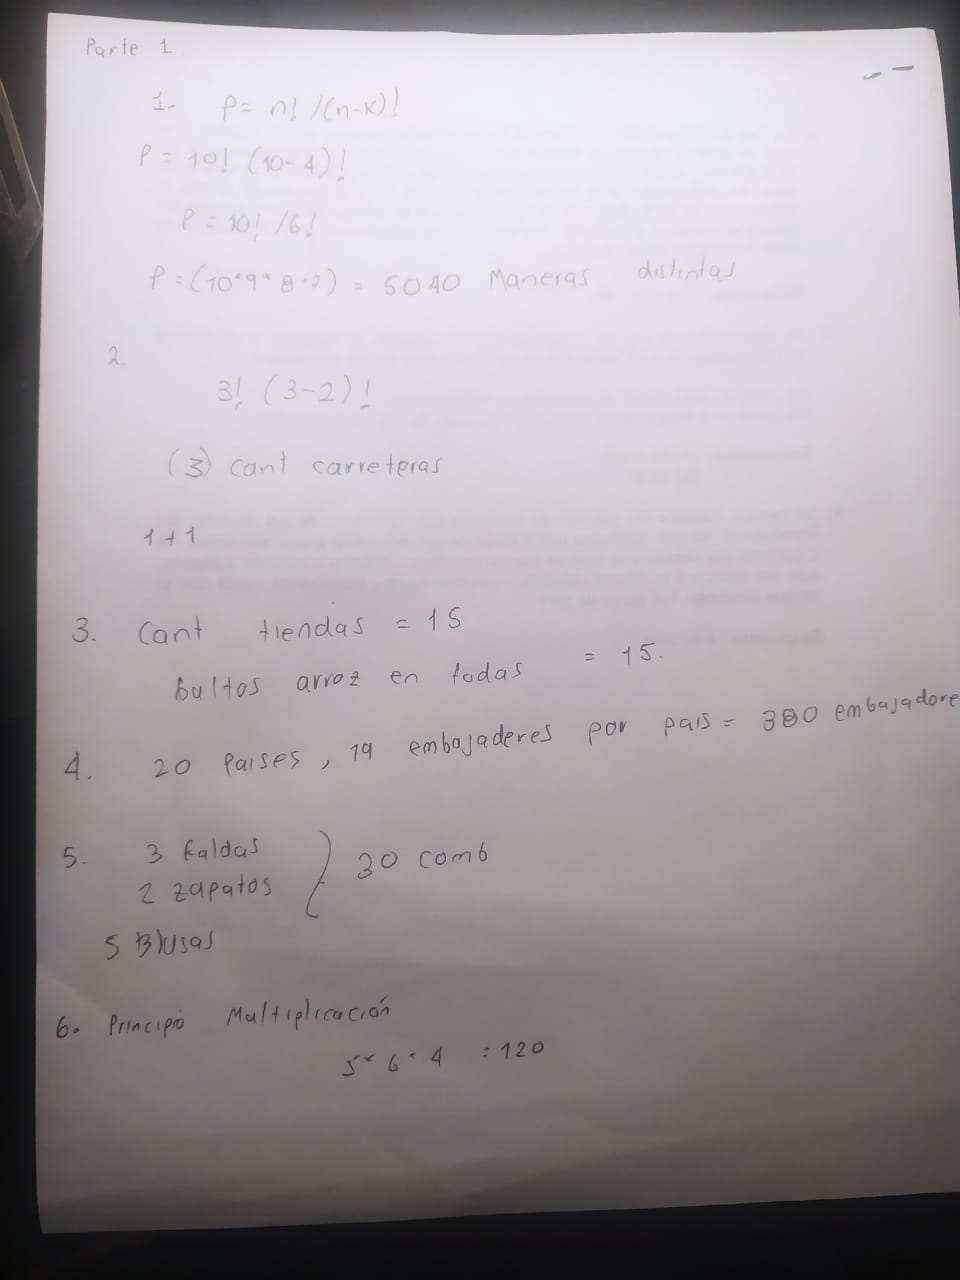 Parte 1
1. P = n! /(n-k)!
P = 10! (10-4)!
P = 10! /6!
P = (10*9*8*7) = 5040 Maneras distintas
2.
3! (3-2)!
(3) cant carreteras
1+1
3. Cant tiendas = 15
bultos arroz en todas = 15.
4. 20 Paises, 19 embajaderes por pais = 380 embajadore
5. 3 faldas
2 zapatos } 30 comb
5 Blusas
6. Principio Multiplicación
5*6*4 = 120